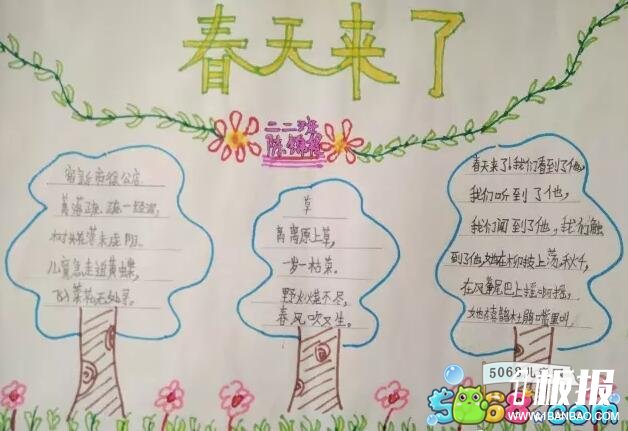 春天来了
二二班
陈锦
新市徐公店
篱落疏疏一径深,
树头花落未成阴.
儿童急走追黄蝶,
飞入菜花无处寻.
草
离离原上草,
一岁一枯荣.
野火烧不尽,
春风吹又生.
春天来了!我们看到了她,
我们听到了她,
我们闻到了她,我们触
到了她,她在柳枝上荡秋千,
在风筝尾巴上摇啊摇,
她在喜鹊杜鹃嘴里叫,
5068儿童
板报
WWW.1BANBAO.COM